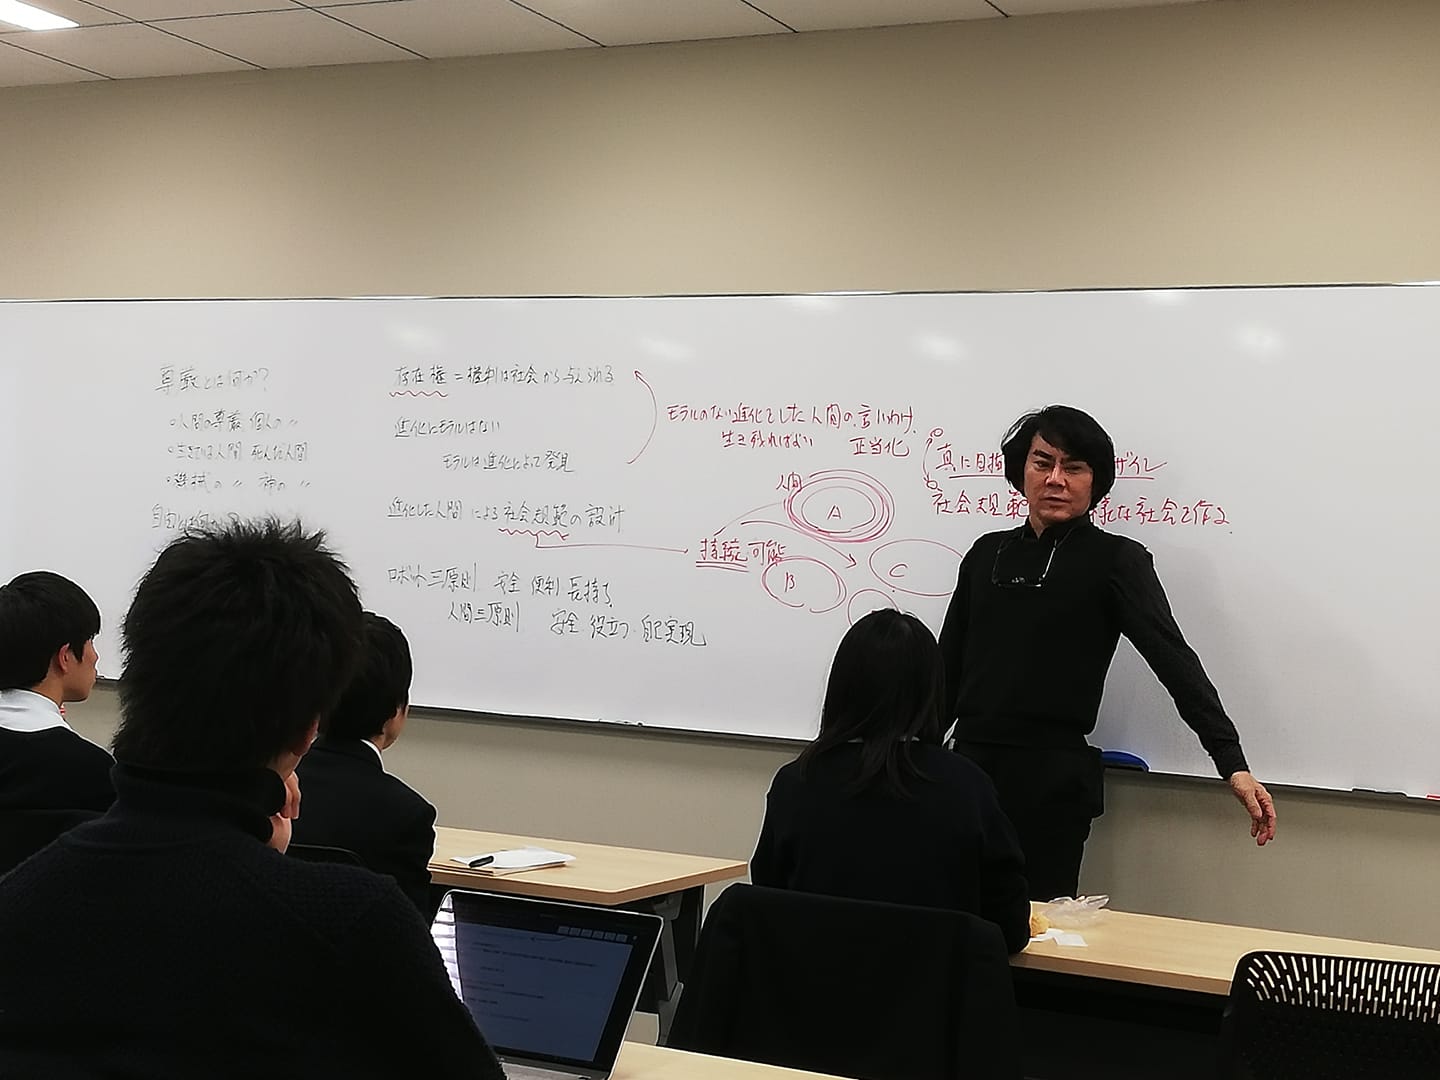 尊厳とは何か?
・人間の尊厳 個人の〃
・生きた人間 死んだ人間
・機械の〃 神の〃
自由とは何か?
存在権=権利は社会から与えられる
進化にモラルはない
モラルは進化によって発見
進化した人間による社会規範の設計
ロボット三原則 安全 便利 長持ち
人間三原則 安全・役立つ・自己実現
モラルのない進化をした人間の言いわけ
生き残ればよい 正当化
人間
A
持続可能
B
C
真に目指 ザイン
社会規範 様な社会を作る